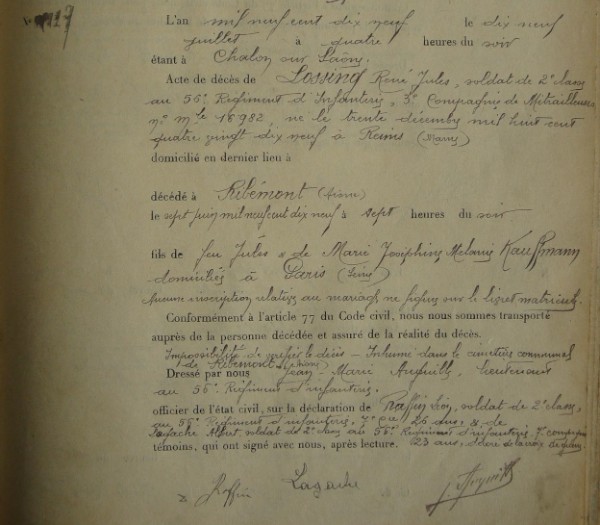 N° 127
L'an mil neuf cent dix neuf le dix neuf
juillet à quatre heures du soir
étant à Chalon sur Saône
Acte de décès de Lossing René Jules, soldat de 2e classe
au 56e Régiment d'Infanterie, 3e Compagnie de Mitrailleuses
no mle 18982, né le trente décembre mil huit cent
quatre vingt dix neuf à Reims (Marne)
domicilié en dernier lieu à
décédé à Ribémont (Aisne)
le sept juin mil neuf cent dix neuf à sept heures du soir
fils de feu Jules & de Marie Joséphine Mélanie Kauffmann
domiciliés à Paris (Seine)
Aucune inscription relative au mariage ne figure sur le livret matricule.
Conformément à l'article 77 du Code civil, nous nous sommes transporté
auprès de la personne décédée et assuré de la réalité du décès.
Impossibilité de vérifier le décès - Inhumé dans le cimetière communal
de Ribémont (Aisne)
Dressé par nous Jean-Marie lieutenant
au 56e Régiment d'infanterie.
officier de l'état civil, sur la déclaration de Raffin soldat de 2e classe,
au 56e Régiment d'infanterie, 7e 26 ans, & de
Lagache Albert, soldat de 2e classe au 56e Régiment d'infanterie 7e compagnie
témoins, qui ont signé avec nous, après lecture. 23 ans,
Raffin Lagache